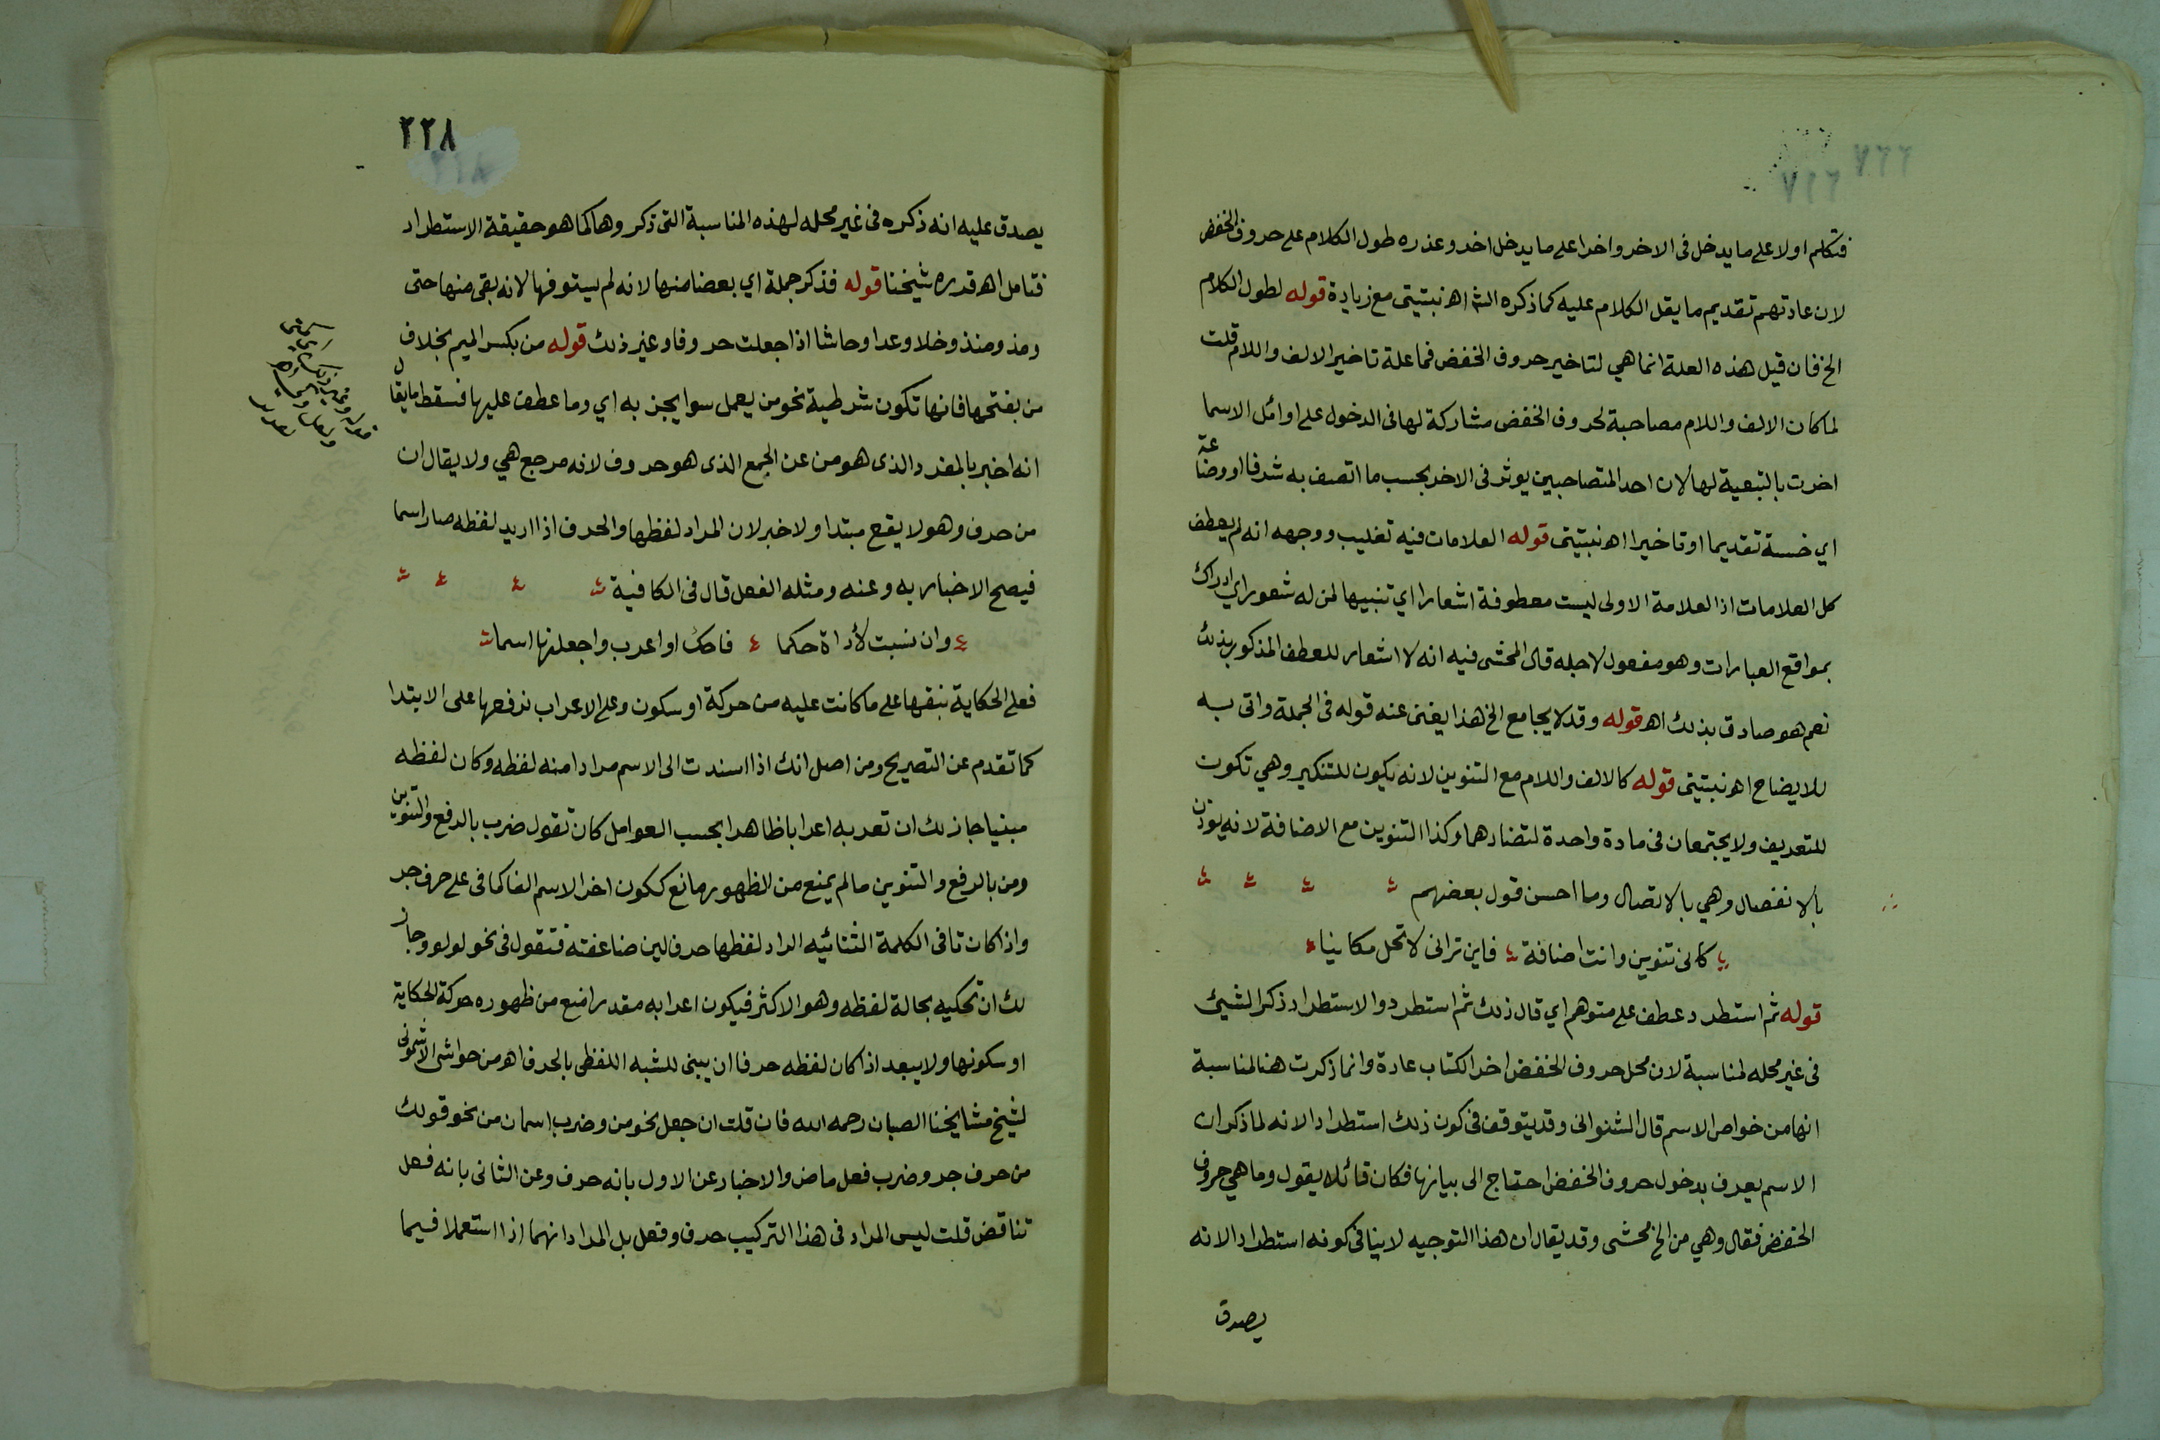 فتكلم اولا على ما يدخل فى الاخر واخرا على ما يدخل اخر وعذره طول الكلام على حروف الخفض
لان عادتهم تقديم ما يقل الكلام عليه كما ذكره الش اهـ نبتيتى مع زيادة قوله لطول الكلام
الخ فان قيل هذه العلة انما هي لتاخير حروف الخفض فما علة تاخير الالف واللام قلت
لما كان الالف واللام مصاحبة لحروف الخفض مشاركة لها فى الدخول على اوائل الاسما
اخرت بالتبعية لها لان احد المتصاحبين يوثر فى الاخر بحسب ما اتصف به شرفا او وضاعة
اي خسة تقديما او تاخيرا اهـ نبتيتى قوله العلامات فيه تغليب ووجهه انه لم يعطف
كل العلامات اذ العلامة الاولى ليست معطوفة اشعارا اي تنبيها لمن له شعور اي ادراك
بمواقع العبارات وهو مفعول لاجله قال المحشى فيه انه لا اشعار للعطف المذكور بذلك
نعم هو صادق بذلك اهـ قوله وقد لا يجامع الخ هذا يغنى عنه قوله فى الجملة واتى به
للايضاح اهـ نبتيتى قوله كالالف واللام مع التنوين لانه يكون للتنكير وهي تكون
للتعريف ولا يجتمعان فى مادة واحدة لتضادهما وكذا التنوين مع الاضافة لانه يوذن
بالانفصال وهي بالاتصال وما احسن قول بعضهم
كانى تنوين وانت اضافة فاين ترانى لا تحل مكانيا
قوله ثم استطرد عطف على متوهم اي قال ذلك ثم استطرد والاستطراد ذكر الشيئ
فى غير محله لمناسبة لان محل حروف الخفض اخر الكتاب عادة وانما ذكرت هنا لمناسبة
انها من خواص الاسم قال الشنوانى وقد يتوقف فى كون ذلك استطرادا لانه لما ذكر ان
الاسم يعرف بدخول حروف الخفض احتاج الى بيانها فكان قائلا يقول وما هي حروف
الخفض فقال وهي من الخ محشى وقد يقال ان هذا التوجيه لا ينافى كونه استطرادا لانه
يصدق
٢٢٨
يصدق عليه انه ذكره فى غير محله لهذه المناسبة التى ذكروها كما هو حقيقة الاستطراد
فتامل اهـ قدره شيخنا قوله فذكر جملة اي بعضا منها لانه لم يستوفها لانه بقى منها حتى
ومذ ومنذ وخلا وعدا وحاشا اذا جعلت حروفا وغير ذلك قوله من بكسر الميم بخلاف
من بفتحها فانها تكون شرطية نحو من يعمل سوا يجز به اي وما عطف عليها فسقط ما يقال
انه اخبر بالمفرد الذى هو من عن الجمع الذى هو حروف لانه مرجع هي ولا يقال ان
من حرف وهو لا يقع مبتدا ولا خبر لان المراد لفظها والحرف اذا اريد لفظه صار اسما
فيصح الاخبار به وعنه ومثله الفعل قال فى الكافية
وان نسبت لأداة حكما فاحك او اعرب واجعلنها اسما
فعلى الحكاية نبقها على ما كانت عليه من حركة او سكون وعلى الاعراب نرفعها على الابتدا
كما تقدم عن التصريح ومن اصل انك اذا اسندت الى الاسم مرادا منه لفظه وكان لفظه
مبنيا جاز لك ان تعربه اعرابا ظاهرا بحسب العوامل كان تقول ضرب بالرفع والتنوين
ومن بالرفع والتنوين ما لم يمنع من الظهور مانع ككون اخر الاسم الفا كما فى على حرف جر
واذا كان ثانى الكلمة الثنائيه المراد لفظها حرف لين ضاعفته فتقول فى نحو لو لوو وجاز
لك ان تحكيه بحالة لفظه وهو الاكثر فيكون اعرابه مقدرا منع من ظهوره حركة الحكاية
او سكونها ولا يبعد اذا كان لفظه حرفا ان يبنى للشبه اللفظى بالحرف اهـ من حواشى الاشمونى
لشيخ مشايخنا الصبان رحمه الله فان قلت ان جعل نحو من وضرب اسمان من نحو قولك
من حرف جر وضرب فعل ماض والاخبار عن الاول بانه حرف وعن الثانى بانه فعل
تناقض قلت ليس المراد فى هذا التركيب حرف وفعل بل المراد انهما اذا استعملا فيما